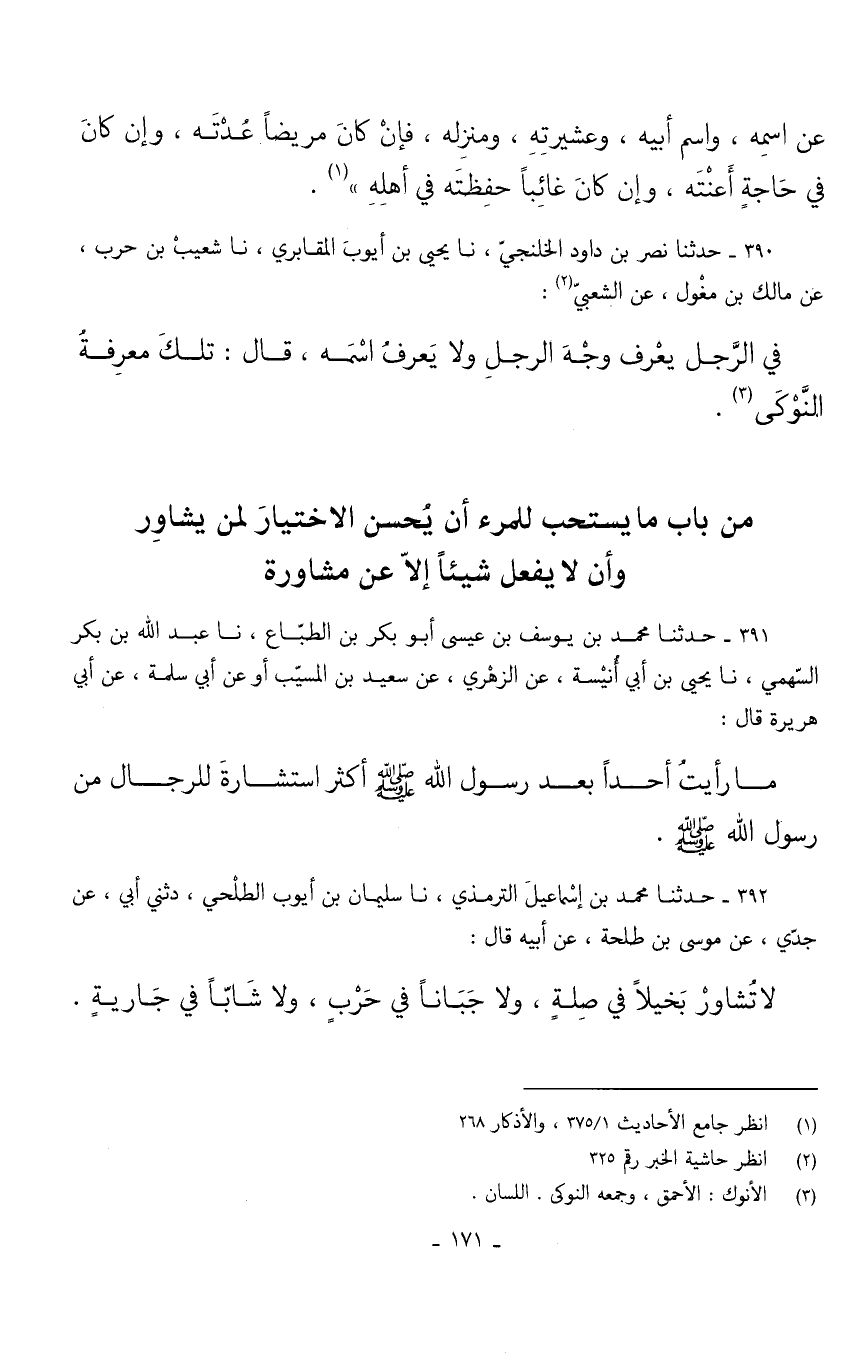 عن اسمِه ، واسم أبيه ، وعشيرتِهِ ، ومنزِله ، فإنْ كانَ مريضاً عُدْتَـه ، وإن كانَ
في حَاجةٍ أَعنْتَه ، وإن كانَ غائِباً حفِظتَه في أهلِهِ »(١) .
٣٩٠ ـ حدثنا نصر بن داود الخلنجيّ ، نـا يحيى بن أيوبَ المقابري ، نـا شعيبْ بن حرب ،
عن مالك بن مغْول ، عن الشعبيّ(٢) :
في الرَّجل يعْرف وجْهَ الرجلِ ولا يَعرفُ اسْمَـه ، قـال : تلـكَ معرِفـةُ
النَّوْكَى(٣) .
من باب ما يستحب للمرء أن يُحسن الاختيارَ لمن يشاوِر
وأن لا يفعل شيئاً إلاّ عن مشاورة
٣٩١ ـ حدثنا محمد بن يوسف بن عيسى أبو بكر بن الطبّاع ، نـا عبد الله بن بكر
السّهمي ، نـا يحيى بن أبي أُنَيْسة ، عن الزهْري ، عن سعيد بن المسيّب أو عن أبي سلمة ، عن أبي
هريرة قال :
مـا رأيتُ أحـداً بعـد رسـول الله ﷺ أكثر استشـارةَ للرجـال من
رسول الله ﷺ .
٣٩٢ ـ حدثنـا محمد بن إسْماعيلَ الترمذي ، نـا سليمان بن أيوب الطلْحي ، دثني أبي ، عن
جدّي ، عن موسى بن طلحة ، عن أبيه قال :
لا تُشاورْ بَخيلاً في صِلةٍ ، ولا جَبَـانـاً في حَرْبٍ ، ولا شَـابّـاً في جَـاريـةٍ .
(١) انظر جامع الأحاديث ٣٧٥/١ ، والأذكار ٢٦٨
(٢) انظر حاشية الخبر رقم ٣٢٥
(٣) الأنوك : الأحمق ، وجمعه النوكى . اللسان .
ـ ١٧١ ـ